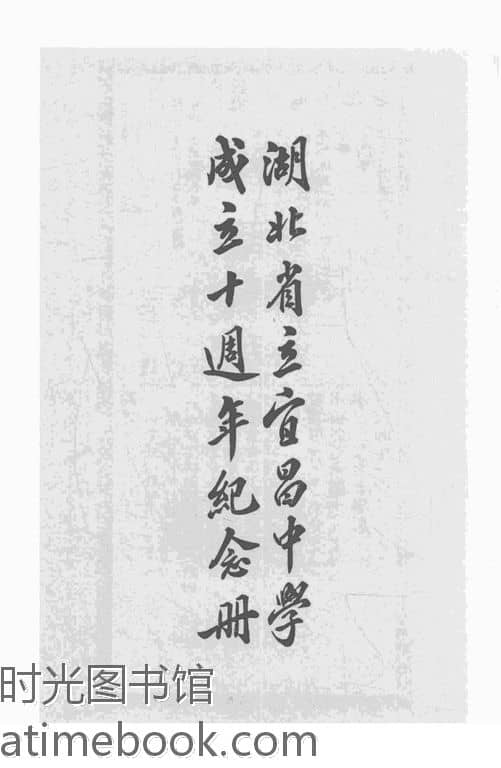 湖北省立宜昌中學
成立十週年紀念册
时光图书馆
atimebook.com